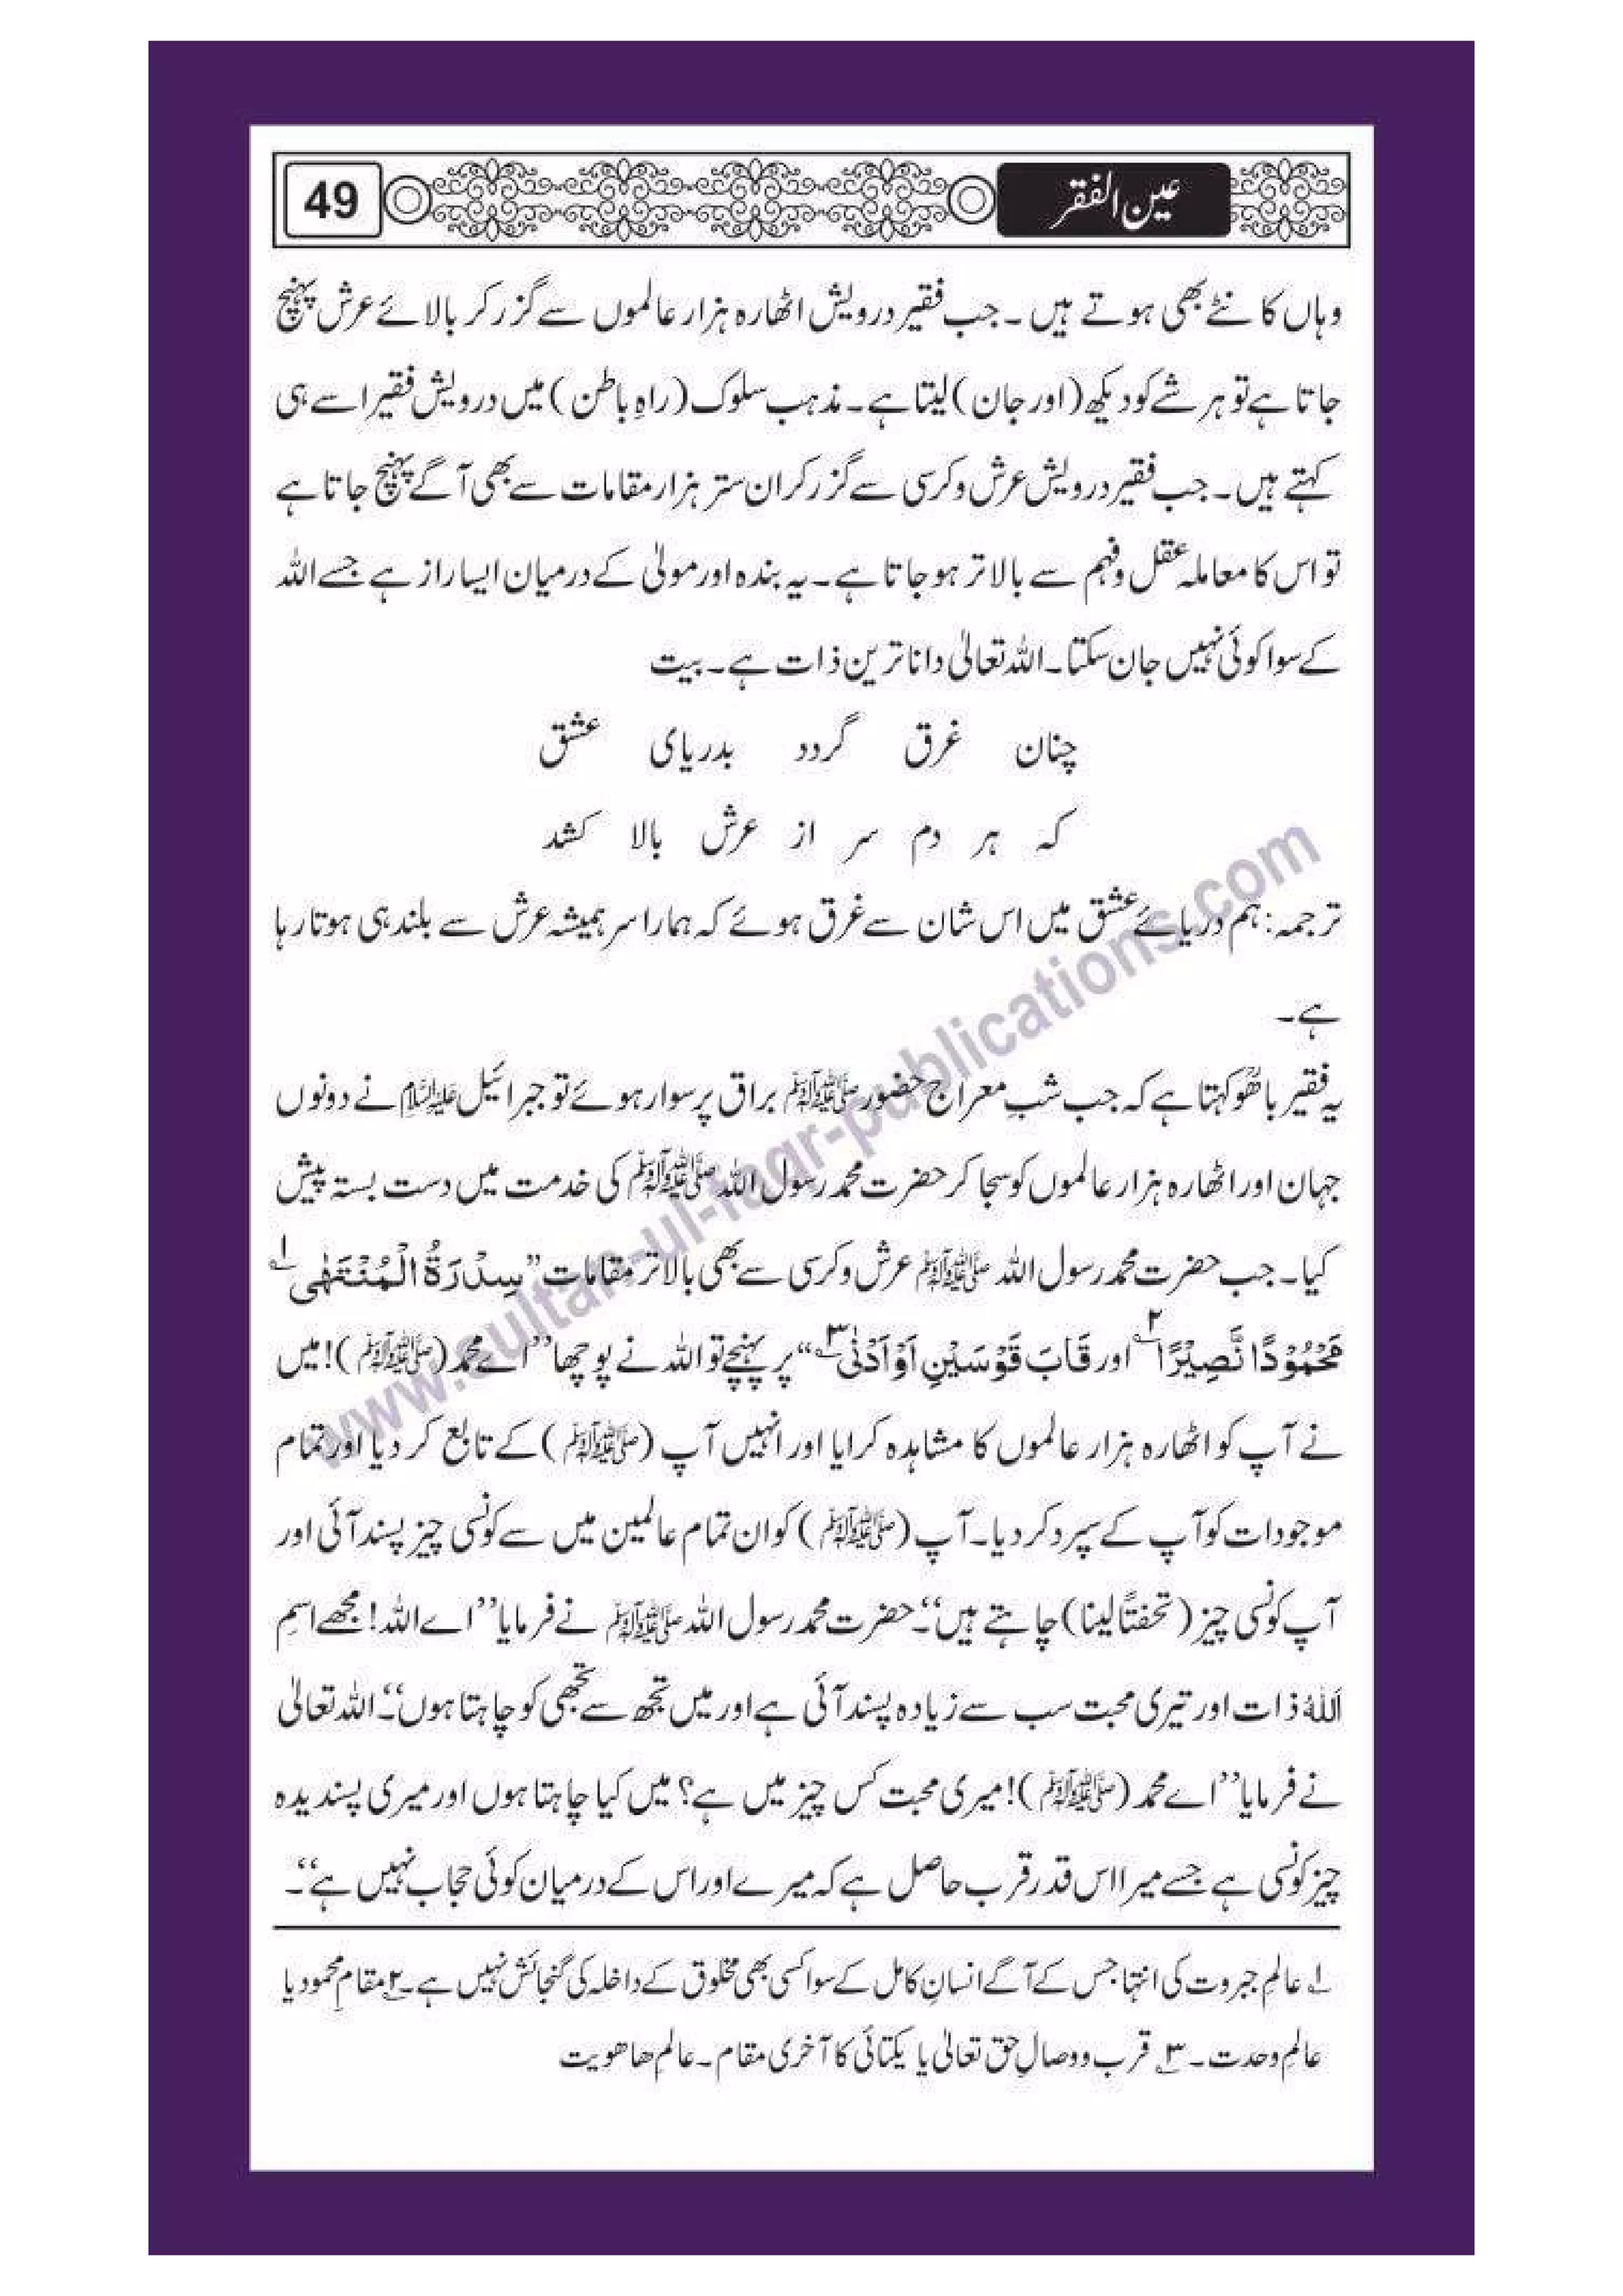 عین الفقر
49
وہاں کانٹے بھی ہوتے ہیں۔ جب فقیر درویش اٹھارہ ہزار عالموں سے گزر کر بالائے عرش پہنچ
جاتا ہے تو ہر شے کو دیکھ (اور جان) لیتا ہے۔ مذہب سلوک (راہِ باطن) میں درویش فقیر اسے ہی
کہتے ہیں۔ جب فقیر درویش عرش و کرسی سے گزر کر ان ستر ہزار مقامات سے بھی آگے پہنچ جاتا ہے
تو اس کا معاملہ عقل و فہم سے بالاتر ہو جاتا ہے۔ یہ بندہ اور مولیٰ کے درمیان ایسا راز ہے جسے اللہ
کے سوا کوئی نہیں جان سکتا۔ اللہ تعالیٰ دانا ترین ذات ہے۔ بیت
چنان غرق گردد بدریای عشق
کہ ہر دم سر از عرش بالا کشد
ترجمہ: ہم دریائے عشق میں اس شان سے غرق ہوئے کہ ہمارا سر ہمیشہ عرش سے بلند ہی ہوتا رہا
ہے۔
یہ فقیر باھُوؒ کہتا ہے کہ جب شبِ معراج حضور ﷺ براق پر سوار ہوئے تو جبرائیل علیہ السلام نے دونوں
جہان اور اٹھارہ ہزار عالموں کو سجا کر حضرت محمد رسول اللہ ﷺ کی خدمت میں دست بستہ پیش
کیا۔ جب حضرت محمد رسول اللہ ﷺ عرش و کرسی سے بھی بالاتر مقامات ”سِدْرَۃُ الْمُنْتَھٰی۱؎
مَحْمُوْدًا نَّصِیْرًا۲؎ اور قَابَ قَوْسَیْنِ اَوْ اَدْنٰی۳؎“ پر پہنچے تو اللہ نے پوچھا ”اے محمد (ﷺ)! میں
نے آپ کو اٹھارہ ہزار عالموں کا مشاہدہ کرایا اور انہیں آپ (ﷺ) کے تابع کر دیا اور تمام
موجودات کو آپ کے سپرد کر دیا۔ آپ (ﷺ) کو ان تمام عالمین میں سے کونسی چیز پسند آئی اور
آپ کونسی چیز (تحفتاً لینا) چاہتے ہیں“۔ حضرت محمد رسول اللہ ﷺ نے فرمایا ”اے اللہ! مجھے اسمِ
اَللّٰہُ ذات اور تیری محبت سب سے زیادہ پسند آئی ہے اور میں تجھ سے تجھی کو چاہتا ہوں“۔ اللہ تعالیٰ
نے فرمایا ”اے محمد (ﷺ)! میری محبت کس چیز میں ہے؟ میں کیا چاہتا ہوں اور میری پسندیدہ
چیز کونسی ہے جسے میرا اس قدر قرب حاصل ہے کہ میرے اور اس کے درمیان کوئی حجاب نہیں ہے“۔
۱؎ عالمِ جبروت کی انتہا جس کے آگے انسانِ کامل کے سوا کسی بھی مخلوق کے داخلہ کی گنجائش نہیں ہے۔ ۲؎ مقامِ محمود یا
عالمِ وحدت۔ ۳؎ قرب و وصالِ حق تعالیٰ یا یکتائی کا آخری مقام۔ عالمِ ھاھویت
www.sultan-ul-faqr-publications.com